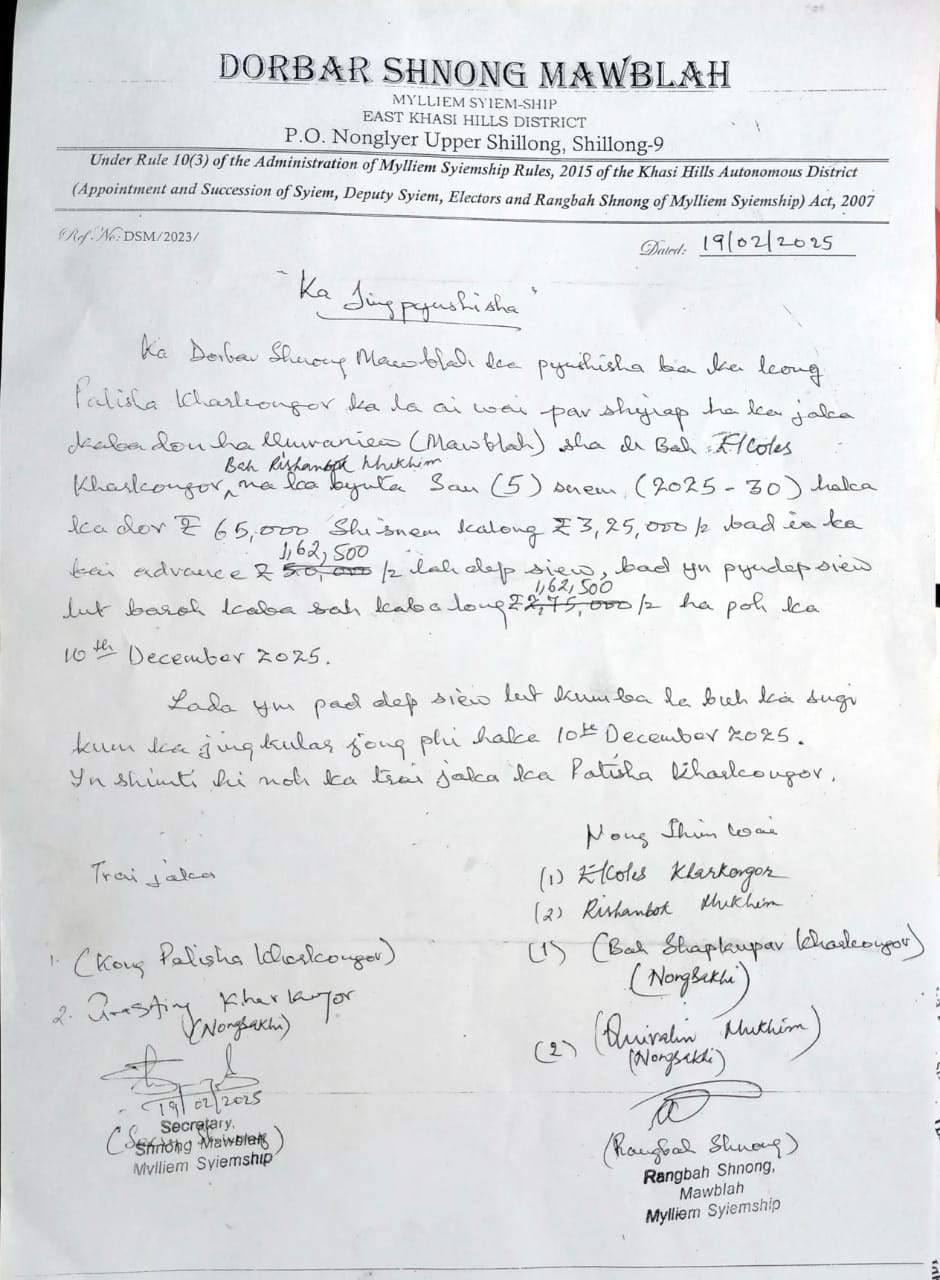 DORBAR SHNONG MAWBLAH
MYLLIEM SYIEM-SHIP
EAST KHASI HILLS DISTRICT
P.O. Nonglyer Upper Shillong, Shillong-9
Under Rule 10(3) of the Administration of Mylliem Syiemship Rules, 2015 of the Khasi Hills Autonomous District
(Appointment and Succession of Syiem, Deputy Syiem, Electors and Rangbah Shnong of Mylliem Syiemship) Act, 2007
Ref. No: DSM/2023/
Dated: 19/02/2025
"Ka Jingpynshisha"
Ka Dorbar Shnong Mawblah ka pynshisha ba ka kong
Patisha Kharkongor ka la ai wai par shyrap ha ka jaka
kaba don ha (Mawblah) sha di Bah E/Coles
Bah Rishanbok Mukhim
Kharkongor, na ka bynta San (5) snem (2025 - 30) haka
ka dor ₹ 65,000 Shi snem kalong ₹3,25,000/= bad ia ka
1,62,500
bai advance ₹ 50,000/= lah dep siew, bad yn pyndep siew
1,62,500
lut baroh kaba sah kaba long ₹2,75,000/= ha poh ka
10th December 2025.
Lada ym pad dep siew lut kumba la buh ka sngi
kum ka jingkular jong phi hake 10th December 2025.
Yn shimti hi noh ka trai jaka ka Patisha Kharkongor.
Nong Shim Wai
Trai jaka
(1) E/Coles Kharkongor
(2) Rishanbok Mukhim
1. (Kong Patisha Kharkongor)
(1) (Bah Shaplangpar Kharkongor)
(Nongsakhi)
2. Kharkongor
(Nongsakhi)
(2) (Quiralin Mukhim)
(Nongsakhi)
19/02/2025
Secretary,
Shnong Mawblah
Mylliem Syiemship
(Rangbah Shnong)
Rangbah Shnong,
Mawblah
Mylliem Syiemship